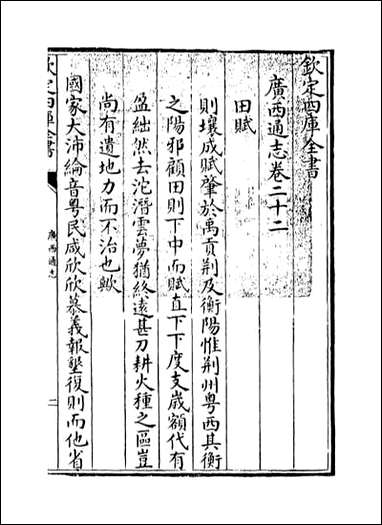 欽定四庫全書
廣西通志卷二十二
田賦
則壤成賦肇於禹貢荆及衡陽惟荆州粤西其衡
之陽邪顧田則下中而賦直下下度支嵗額代有
盈絀然去沱潛雲夢猶終逺甚刀耕火種之區豈
尚有遺地力而不治也歟
國家大沛綸音粤民咸欣欣慕義報墾復則而他省
欽定四庫全書
廣西通志